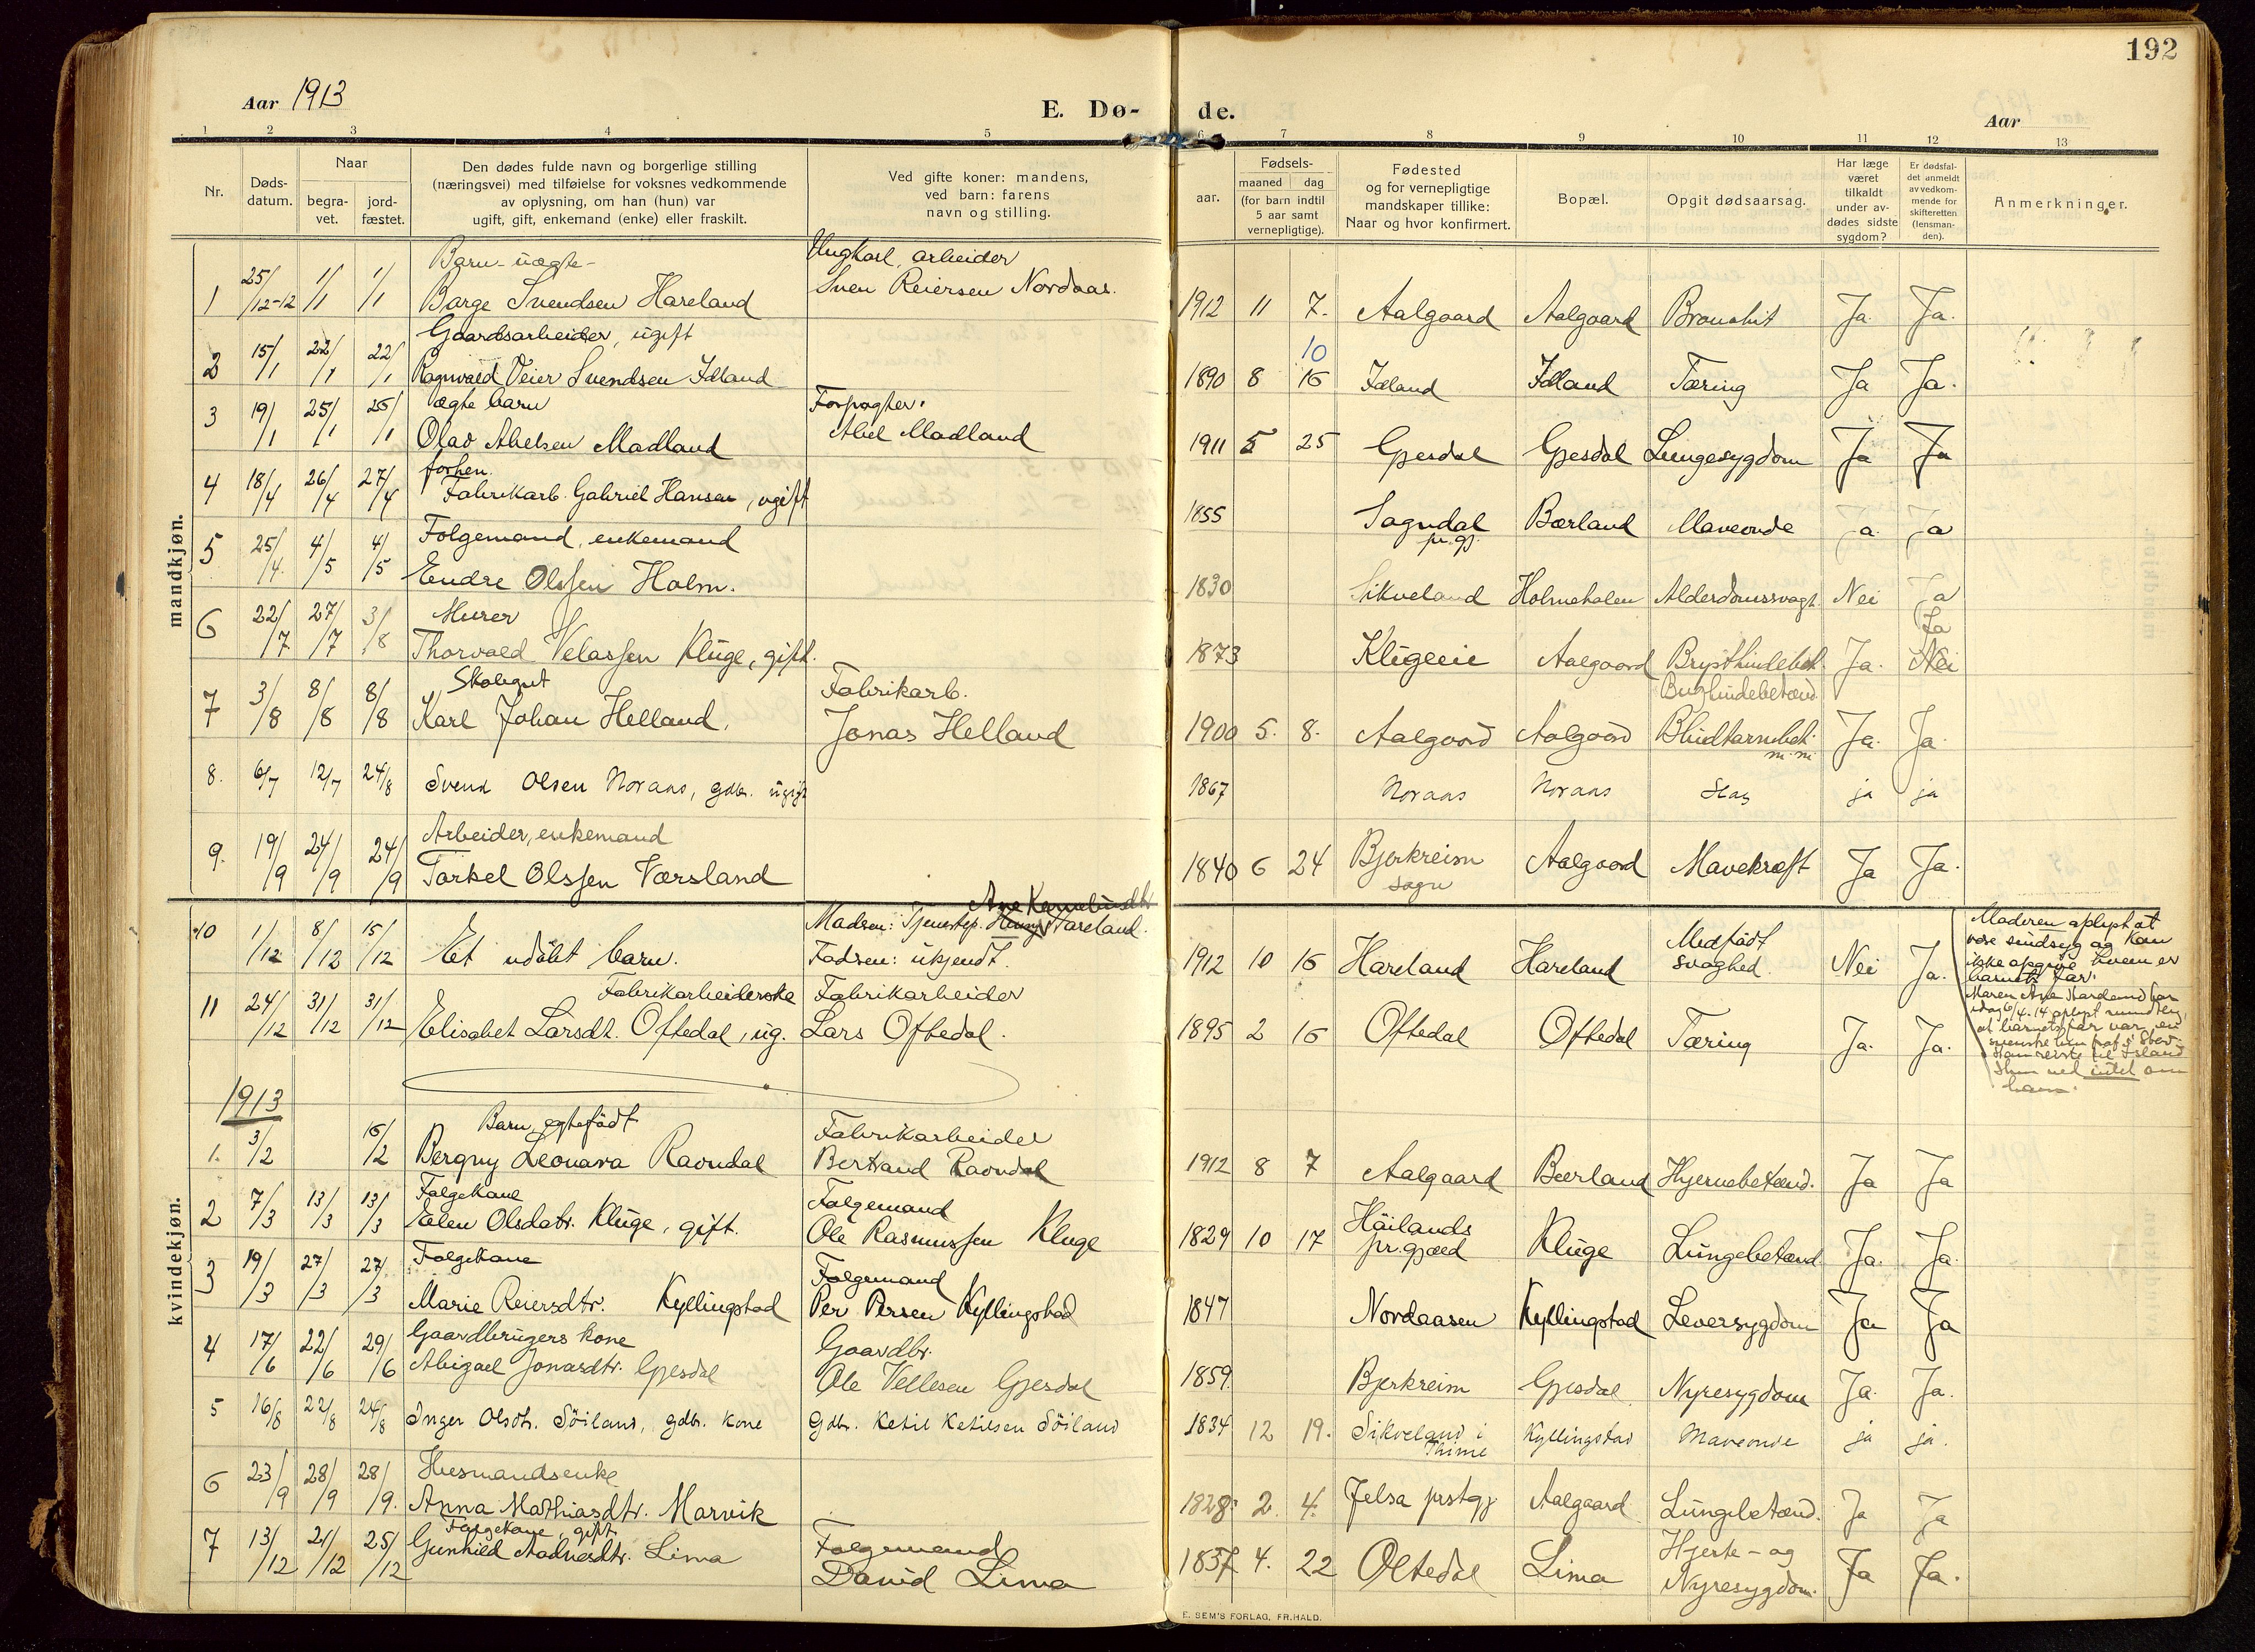 192
Aar 1913
E. Dø-
de.
Aar
1 2 3 4 5 6 7 8 9 10 11 12 13
Nr.
Døds-
datum.
Naar
begra-
vet.
jord-
fæstet.
Den dødes fulde navn og borgerlige stilling
(næringsvei) med tilføielse for voksnes vedkommende
av oplysning, om han (hun) var
ugift, gift, enkemand (enke) eller fraskilt.
Ved gifte koner: mandens,
ved barn: farens
navn og stilling.
Fødsels-
aar.
maaned
dag
(for barn indtil
5 aar samt
vernepligtige).
Fødested
og for vernepligtige
mandskaper tillike:
Naar og hvor konfirmert.
Bopæl.
Opgit dødsaarsag.
Har læge
været
tilkaldt
under av-
dødes sidste
sygdom?
Er dødsfal-
det anmeldt
av vedkom-
mende for
skifteretten
(lensman-
den).
Anmerkninger.
mandkjøn.
Barn-uægte- Ungkarl, arbeider
1 25/12-12 1/1 1/1 Borge Svendsen Hareland Sven Reiersen Nordaas. 1912 11 7. Aalgaard Aalgaard Bronchit Ja. Ja.
Gaardsarbeider, ugift 10
2 15/1 22/1 22/1 Ragnvald Veier Svendsen Idland 1890 8 16 Idland Idland Tæring Ja Ja.
ægte barn Forpagter.
3 19/1 25/1 25/1 Olav Abelsen Madland Abel Madland 1911 5 25 Gjesdal Gjesdal Lungesygdom Ja Ja
forhen.
4 18/4 26/4 27/4 Fabrikarb. Gabriel Hansen, ugift 1855 Sogndal pr.gj. Bærland Maveonde Ja. Ja
Folgemand, enkemand
5 25/4. 4/5 4/5 Endre Olssen Holm. 1830 Sikveland Holmehalen Alderdomssvagh. Nei Ja
Murer Ja
6 22/7 27/7 3/8 Thorvald Velassen Kluge, gift. 1873 Klugeeie Aalgaard Brysthindebet. Ja. Nei
Skolegut Fabrikarb. Bughindebetænd.
7 3/8 8/8 8/8 Karl Johan Helland. Jonas Helland 1900 5. 8. Aalgaard Aalgaard Blindtarmbet. m.m. Ja. Ja.
8. 6/7 12/7 24/8 Svend Olsen Noraas, gdbr. ugift 1867 Noraas Noraas Slag ja ja
Arbeider, enkemand
9. 19/9 24/9 24/9 Torkel Olssen Værsland 1840 6 24 Bjerkreim sogn Aalgaard Mavekræft Ja Ja.
Moderen: Tjenestep. Hareland.
10 1/12 8/12 15/12 Et udøbt barn. Faderen: ukjendt. 1912 10 16 Hareland Hareland Medfødt svaghed. Nei Ja.
Moderen oplyst at
være sindsyg og kan
ikke opgive hvem er
barnets far.
Fabrikarbeiderske Fabrikarbeider
11 24/12 31/12 31/12 Elisabet Larsdt. Oftedal, ug. Lars Oftedal. 1895 2 16 Oftedal Oftedal Tæring Ja. Ja.
Maren Ane Hareland har
idag 6/4-14 oplyst
at barnets far var en
Hun ved intet om
ham.
1913
kvindekjøn.
Barn, egtefødt Fabrikarbeider
1. 3/2 16/2 Bergny Leonara Ravndal Bertrand Ravndal 1912 8 7 Aalgaard Bærland Hjernebetænd. Ja Ja
Folgekone Folgemand
2 7/3 13/3 13/3 Elen Olsdatr. Kluge, gift. Ole Rasmussen Kluge 1829 10 17 Häilands pr.gjæld Kluge Lungebetænd. Ja. Ja.
Folgekone Folgemand
3 19/3 27/3 27/3 Marie Reiersdtr. Kyllingstad Per Persen Kyllingstad 1847 Nordaasen Kyllingstad Leversygdom Ja Ja
Gaardbrugers kone Gaardbr.
4 17/6 22/6 29/6 Abigael Jonasdtr. Gjesdal Ole Vellesen Gjesdal 1859. Bjerkreim Gjesdal Nyresygdom Ja. Ja.
5 16/8 22/8 24/8 Inger Olsdtr. Söiland, gdbr. kone Gdbr. Ketil Ketilsen Söiland 1834 12 19. Sikveland i Thime Kyllingstad Maveonde ja ja.
Husmandsenke
6 23/9 28/9 28/9. Anna Mathiasdtr. Marvik 1828 2. 4. Jelsa prstgj Aalgaard Lungebetænd. Ja Ja
Folgekone, gift Folgemand
7 13/12 21/12 25/12 Gunhild Aadnesdtr. Lima David Lima 1837 4. 22 Oltedal Lima Hjerte- og Nyresygdom. Ja Ja.
E. SEM'S FORLAG, FR.HALD.